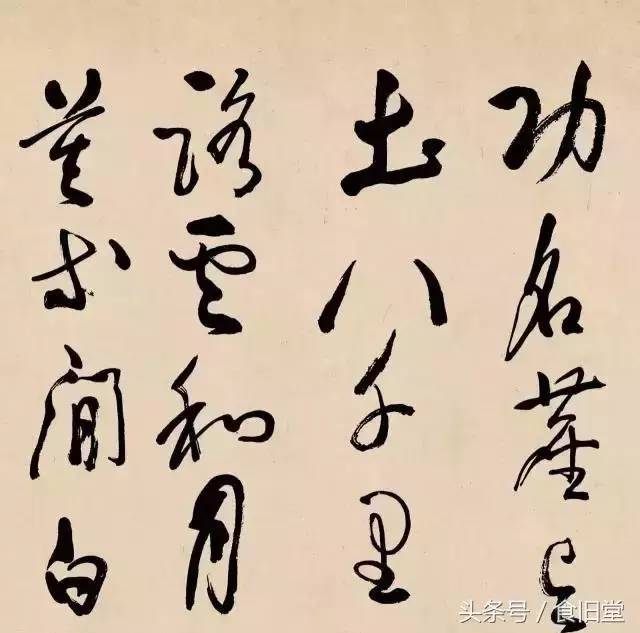 功名塵与
土八千里
路雲和月
莫等閒白
头条号 / 食旧堂